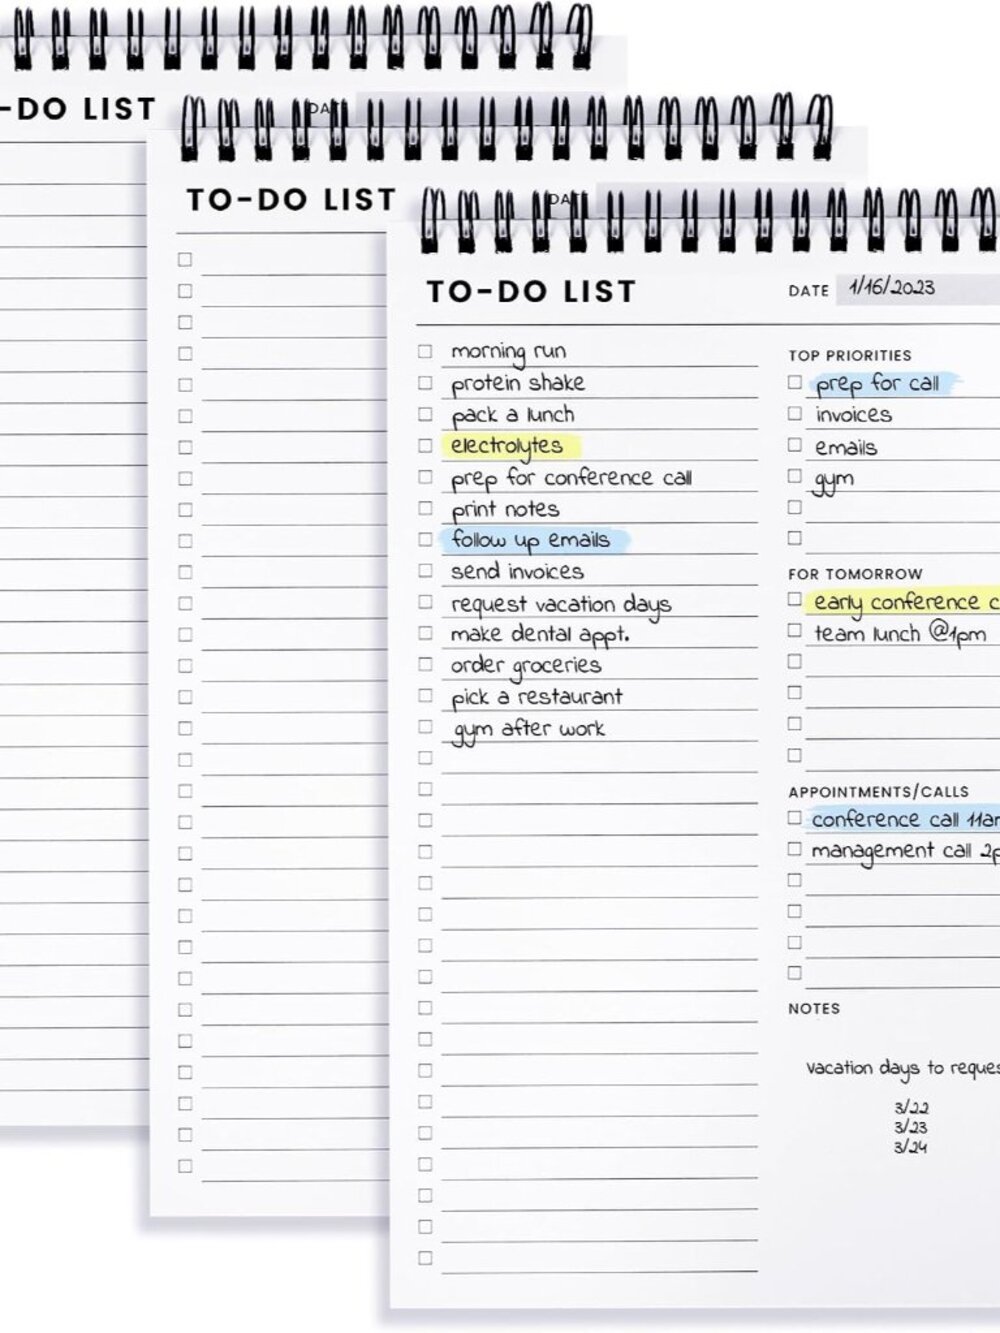 -DO LIST
DATE
TO-DO LIST
TO-DO LIST
DATE 1/16/2023
morning run
protein shake
pack a lunch
electrolytes
prep for conference call
print notes
follow up emails
send invoices
request vacation days
make dental appt.
order groceries
pick a restaurant
gym after work
TOP PRIORITIES
prep for call
invoices
emails
gym
FOR TOMORROW
early conference
team lunch @1pm
APPOINTMENTS/CALLS
conference call
management call
NOTES
Vacation days to
3/22
3/23
3/24